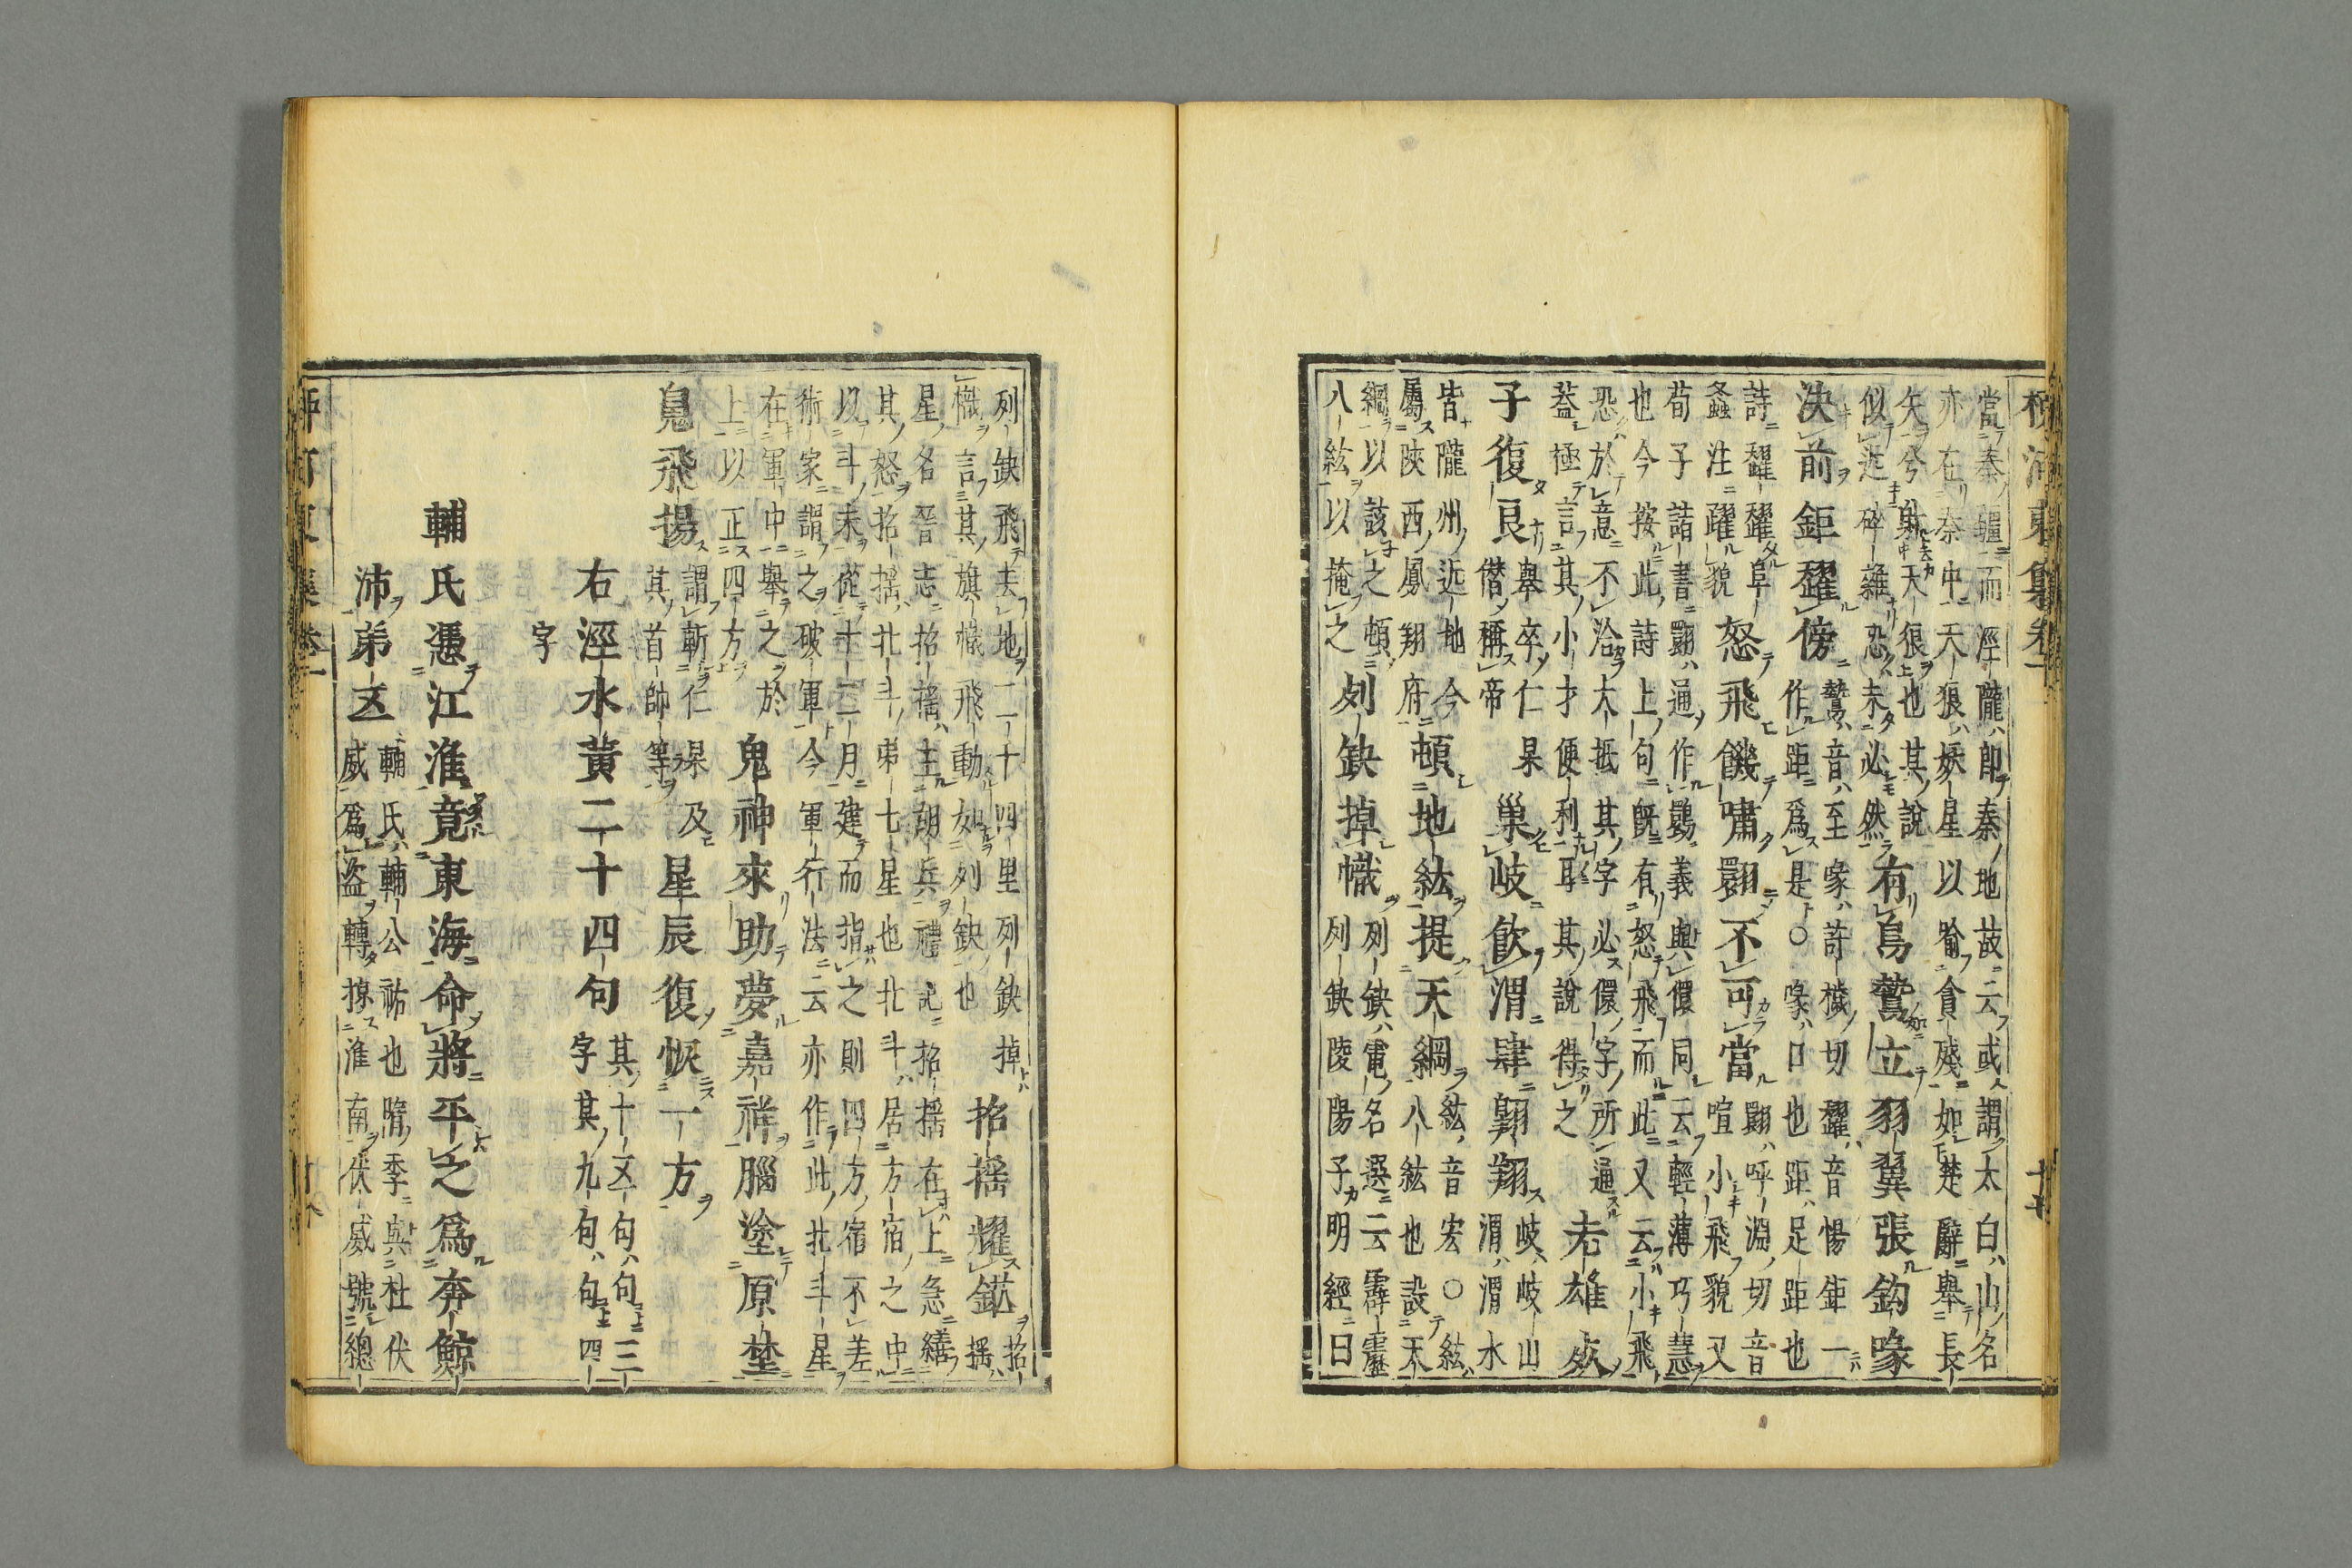 當秦疆而涇隴卽秦地故云或謂太白山名
亦在秦中天狼妖星以喩貪殘如楚辭舉長
矢兮射天狼也其說
似近碎雜恐未必然
有鳥鷙立羽翼張鈎喙
決前鉅趯傍
鷙音至喙許穢切趯音惕鉅一
作距爲是○喙口也距足距也
怒飛饑嘯翾不可當
翾呼淵切音
喧小飛貌又
詩趯趯阜
螽注躍貌
荀子詰書翾通作𦒘義與儇同云輕薄巧慧
也今按此詩上句旣有怒飛而此又云小飛
恐於意不洽大抵其字必儇字所通
葢極言其小才便利耳其說得之
老雄死
子復良
舉卒仁杲
僭稱帝
巢岐飮渭肆翶翔
岐岐山
渭渭水
皆隴州近地今
屬陝西鳳翔府
頓地紘提天綱
紘音宏○紘
八紘也設天
綱以該之頓
八紘以掩之
列缺掉幟
列缺電名選云霹靂
列缺陵陽子明經曰
列缺飛去地二千四里列缺掉
幟言其旗幟飛動如列缺也
招搖耀鋩
招
搖
星名晉志招搖主胡兵禮記招搖在上急繕
其怒招搖北斗弟七星也北斗居方宿之中
以斗末從十二月建而指之則四方宿不差
術家謂之破軍今軍行法云亦作此北斗星
在軍中舉之於
上以正四方
鬼神來助夢嘉祥腦塗原埜
鬼飛揚
謂斬仁杲及
其首帥等
星辰復恢一方
右涇水黃二十四句
其十五句句三
字其九句句四
字
輔氏憑江淮竟東海命將平之爲奔鯨
沛弟五
輔氏輔公祏也隋季與杜伏
威爲盜轉掠淮南伏威號總